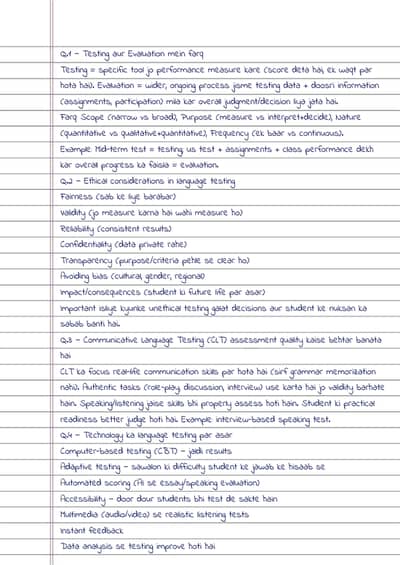 Q.1 - Testing aur Evaluation mein farq
Testing = specific tool jo performance measure kare (score deta hai, ek waqt par
hota hai). Evaluation = wider, ongoing process jisme testing data + doosri information
(assignments, participation) mila kar overall judgment/decision liya jata hai.
Farq Scope (narrow vs broad), Purpose (measure vs interpret+decide), Nature
(quantitative vs qualitative+quantitative), Frequency (ek baar vs continuous).
Example Mid-term test = testing; us test + assignments + class performance dekh
kar overall progress ka faisla = evaluation.
Q.2 - Ethical considerations in language testing
Fairness (sab ke liye barabar)
Validity (jo measure karna hai wahi measure ho)
Reliability (consistent results)
Confidentiality (data private rahe)
Transparency (purpose/criteria pehle se clear ho)
Avoiding bias (cultural, gender, regional)
Impact/consequences (student ki future life par asar)
Important isliye kyunke unethical testing galat decisions aur student ke nuksan ka
sabab banti hai.
Q.3 - Communicative Language Testing (CLT) assessment quality kaise behtar banata
hai
CLT ka focus real-life communication skills par hota hai (sirf grammar memorization
nahi). Authentic tasks (role-play, discussion, interview) use karta hai jo validity barhate
hain. Speaking/listening jaise skills bhi properly assess hoti hain. Student ki practical
readiness better judge hoti hai. Example interview-based speaking test.
Q.4 - Technology ka language testing par asar
Computer-based testing (CBT) - jaldi results
Adaptive testing - sawalon ki difficulty student ke jawab ke hisaab se
Automated scoring (AI se essay/speaking evaluation)
Accessibility - door dour students bhi test de sakte hain
Multimedia (audio/video) se realistic listening tests
Instant feedback
Data analysis se testing improve hoti hai